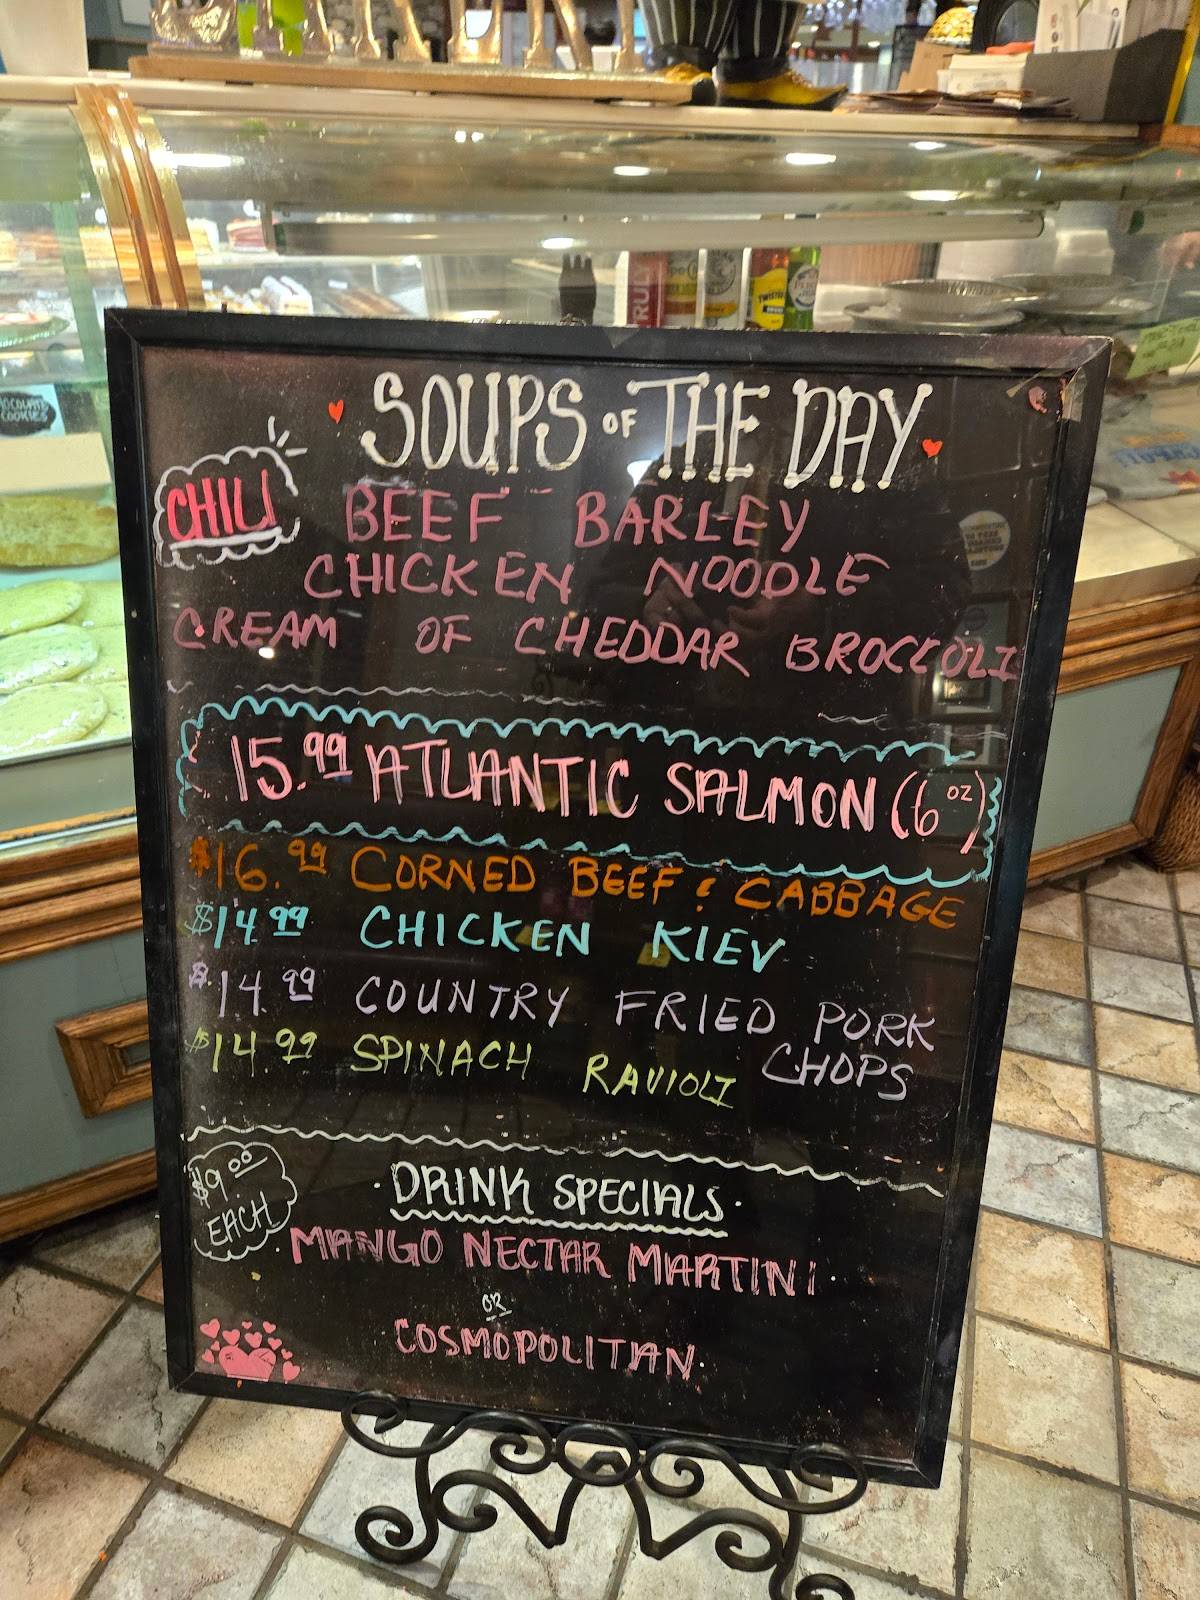 TRULY
TWISTED
COOKIES
SOUPS OF THE DAY
CHILI
BEEF BARLEY
CHICKEN NOODLE
CREAM OF CHEDDAR BROCCOLI
15.99 ATLANTIC SALMON (6 oz)
$16.99 CORNED BEEF & CABBAGE
$14.99 CHICKEN KIEV
$14.99 COUNTRY FRIED PORK
CHOPS
$14.99 SPINACH RAVIOLI
$9.00
EACH
· DRINK SPECIALS ·
· MANGO NECTAR MARTINI ·
OR
· COSMOPOLITAN ·